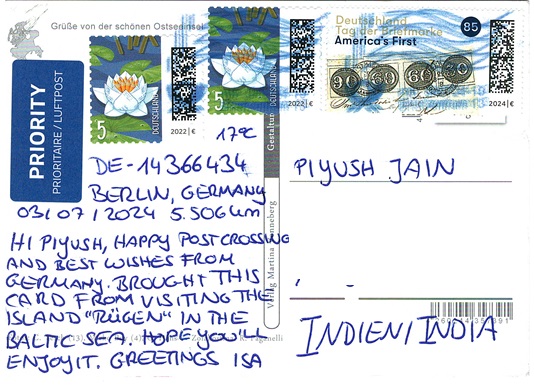 Grüße von der schönen Ostseeinsel
PRIORITY
PRIORITAIRE / LUFTPOST
5
DEUTSCHLAND
2022 | €
5
DEUTSCHLAND
2022 | €
Deutschland
Tag der Briefmarke
America's First
85
90
60
60
90
2024 | €
17°C
Gestaltung
DE-14366434
BERLIN, GERMANY
03/07/2024 5.506km
HI PIYUSH, HAPPY POSTCROSSING
AND BEST WISHES FROM
GERMANY. BROUGHT THIS
CARD FROM VISITING THE
ISLAND "RÜGEN" IN THE
BALTIC SEA. HOPE YOU'LL
ENJOY IT. GREETINGS ISA
Verlag Martina
PIYUSH JAIN
INDIEN/INDIA